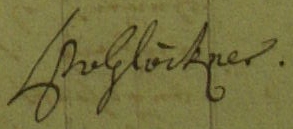 Glöckner.